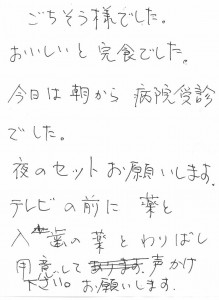 ごちそう様でした。
おいしいと完食でした。
今日は朝から病院受診
でした。
夜のセットお願いします。
テレビの前に薬と
入歯の薬とわりばし
用意して 声かけ
下さい。お願いします。